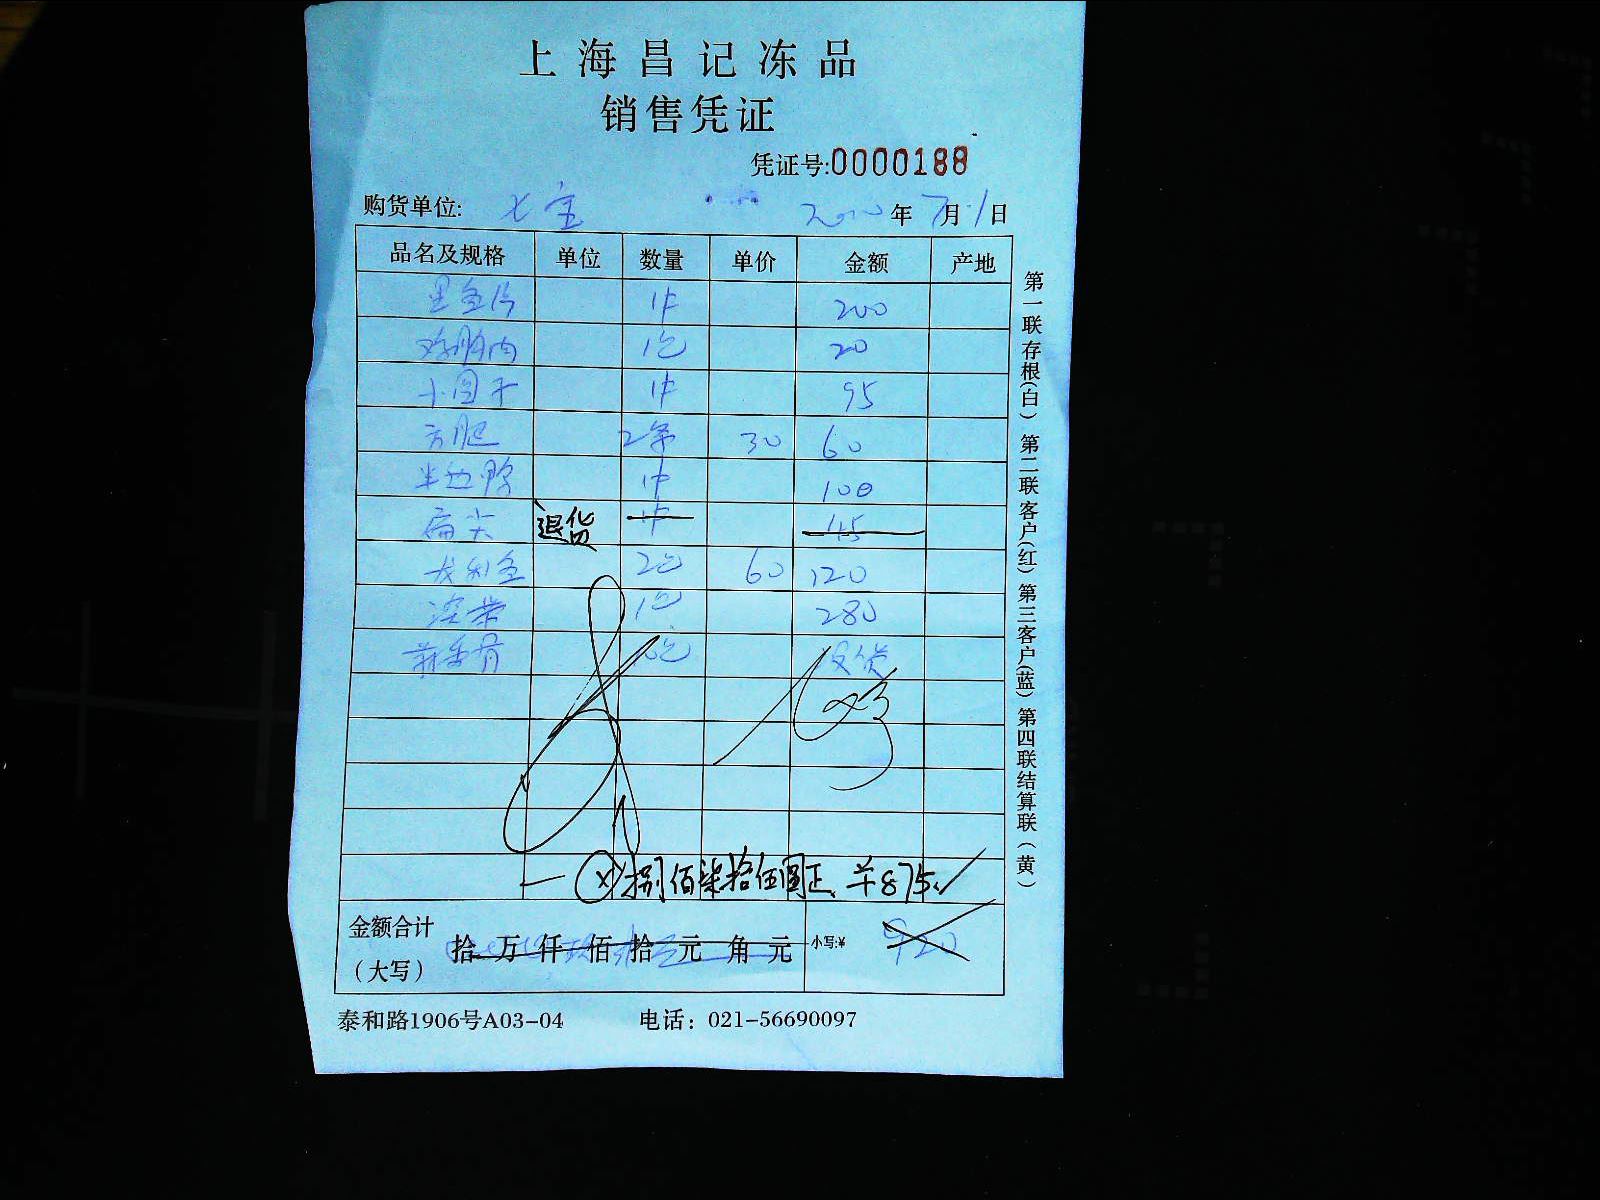 上海昌记冻品
销售凭证
凭证号:0000188
购货单位: 七宝 年 7月1日
品名及规格 单位 数量 单价 金额 产地
黑鱼片 1件 200
鸡脯肉 1包 20
小圆子 1件 95
方腿 2条 30 60
半边鸭 1件 100
扁尖 退货 1件 45
龙利鱼 2包 60 120
1包 280
欠货
捌佰柒拾伍圆正 ¥875
金额合计
(大写)
拾 万 仟 佰 拾 元 角 元 小写:¥ 920
泰和路1906号A03-04 电话: 021-56690097
第一联存根(白) 第二联客户(红) 第三客户(蓝) 第四联结算联(黄)